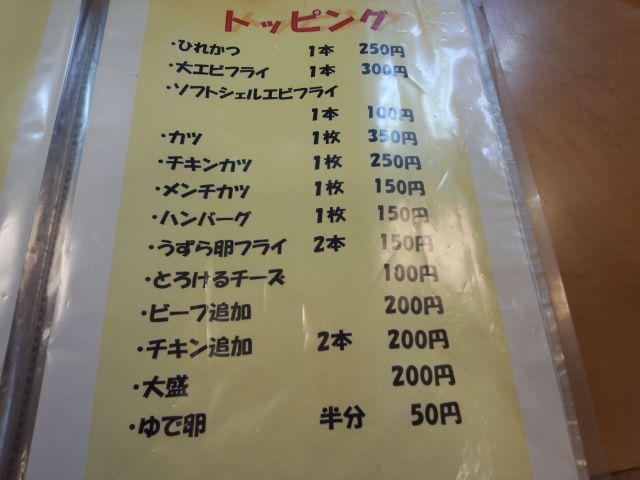 トッピング
・ひれかつ 1本 250円
・大エビフライ 1本 300円
・ソフトシェルエビフライ
1本 100円
・カツ 1枚 350円
・チキンカツ 1枚 250円
・メンチカツ 1枚 150円
・ハンバーグ 1枚 150円
・うずら卵フライ 2本 150円
・とろけるチーズ 100円
・ビーフ追加 200円
・チキン追加 2本 200円
・大盛 200円
・ゆで卵 半分 50円